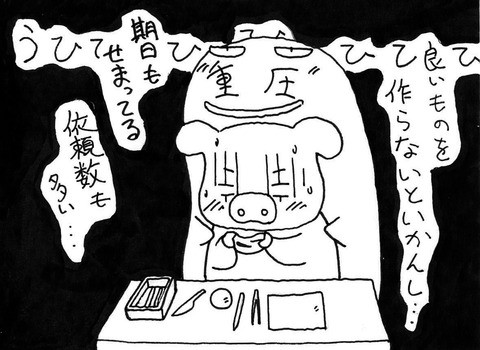 うひひひひひひひひ
重圧
良いものを
作らないといかんし…
期日も
せまってる
依頼数も
多い…